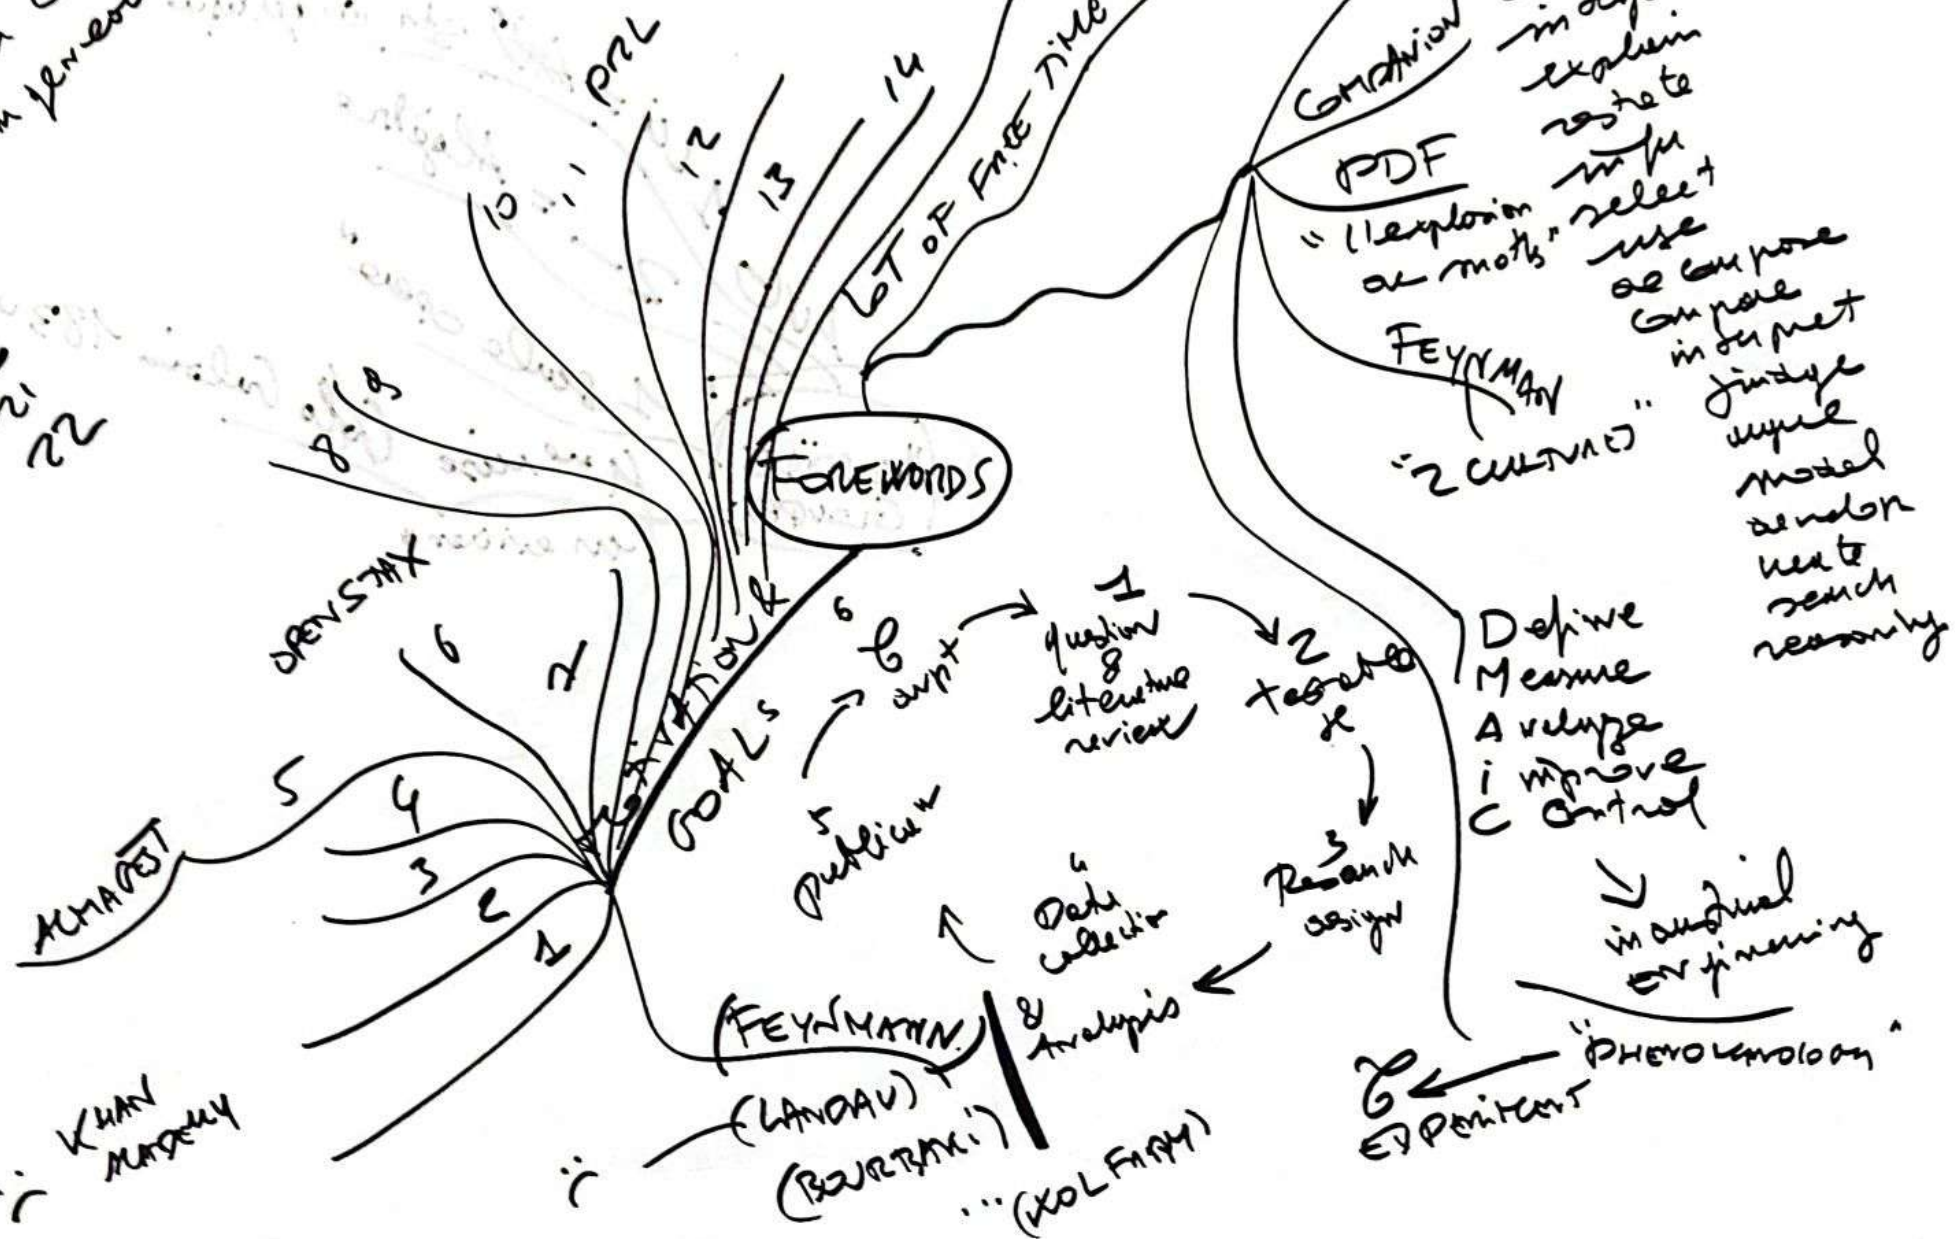 PRL
10
11
12
13
14
LOT OF FREE TIME
COMPANION
PDF
"
explosion
or moths"
FEYNMAN
"2 CULTURES"
explain
restate
infer
select
use
decompose
compare
interpret
judge
argue
model
develop
create
search
reasoning
22
9
8
FOREWORDS
OPENSTAX
6
7
5
4
3
2
1
ALMAGEST
KHAN
ACADEMY
MOTIVATION &
GOALS
1
question
&
literature
review
2
testable
3
Research
design
4
Data
collection
&
Analysis
5
publication
6
Define
Measure
Analyze
improve
Control
industrial
engineering
"PHENOMENOLOGY"
EXPERIMENT
(FEYNMANN)
(LANDAU)
(BOURBAKI)
...(WOLFRAM)